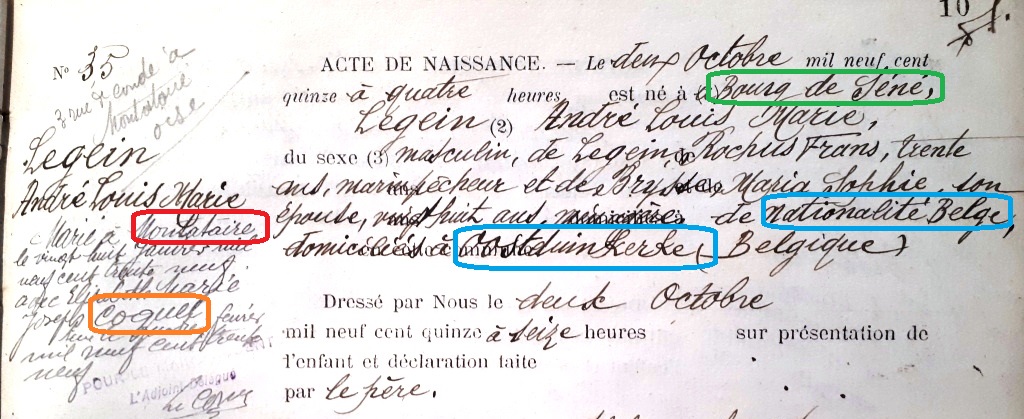 10
N° 35
3 rue de Condé à
Montataire
oise
Legein
André Louis Marie
Marié à Montataire
le vingt huit janvier mil
neuf cent trente neuf
avec Elisabeth Marie
Joseph Coquel
février
mil neuf cent trente
neuf
POUR LE
L'Adjoint Délégué
ACTE DE NAISSANCE. — Le deux Octobre mil neuf cent
quinze à quatre heures est né à Bourg de Séné,
Legein (2) André Louis Marie,
du sexe (3) masculin, de Legein, Rochus Frans, trente
ans, marin pêcheur et de Maria Sophie, son
épouse, vingt huit ans, ménagère, de nationalité Belge,
domiciliés à Oostduinkerke (Belgique)
Dressé par Nous le deux Octobre
mil neuf cent quinze à seize heures sur présentation de
l'enfant et déclaration faite
par le père.